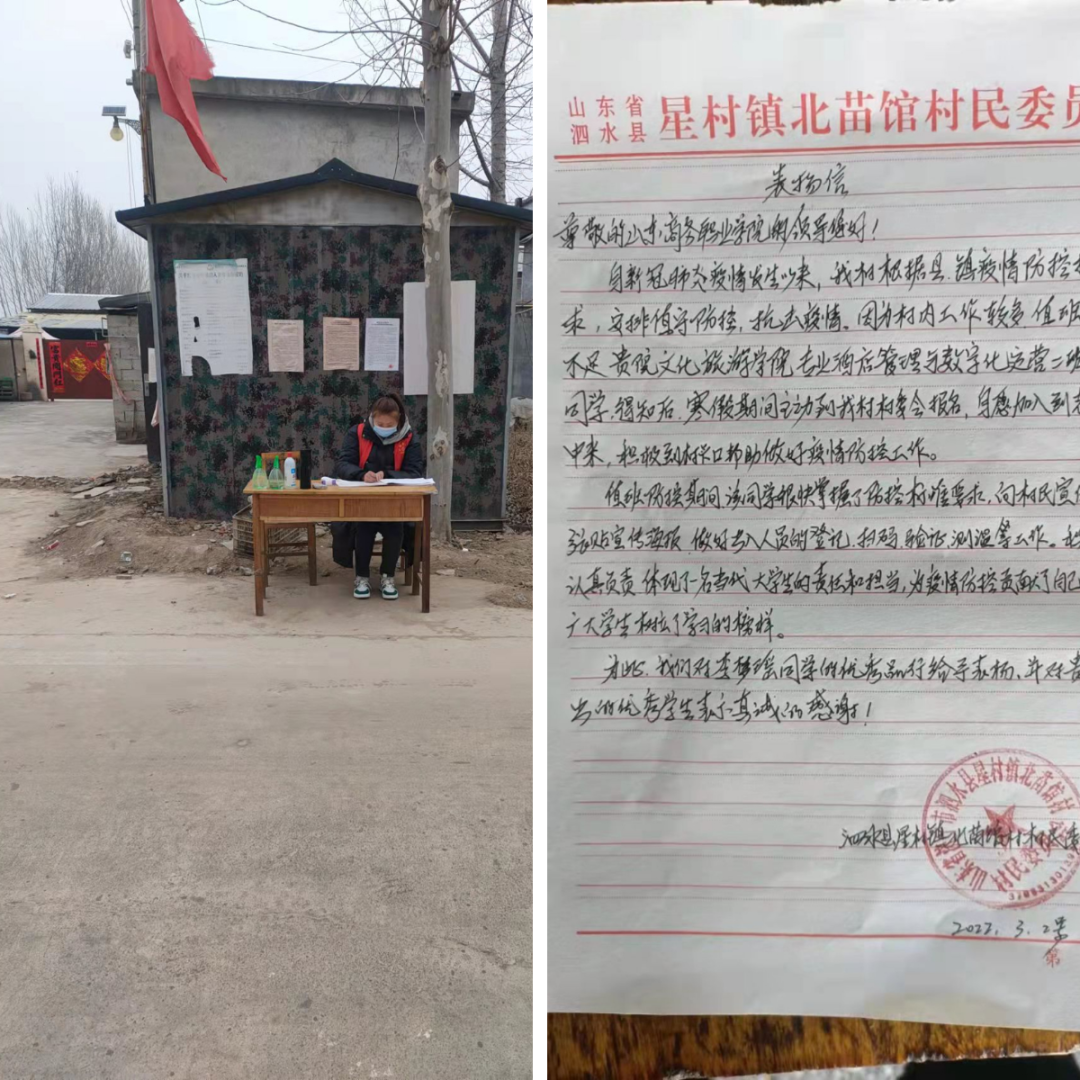 山东省
泗水县
星村镇北苗馆村民委员
表扬信
尊敬的山东商务职业学院的领导您好！
自新冠肺炎疫情发生以来，我村根据县、镇疫情防控
求，安排值守防控，抗击疫情。因为村内工作较多，值班
不足 贵院文化旅游学院专业酒店管理与数字化运营二班
同学，得知后，寒假期间主动到我村村委会报名，自愿加入到
中来，积极到村口帮助做好疫情防控工作。
值班防控期间，该同学很快掌握了防控标准要求，向村民宣
张贴宣传海报、做好出入人员的登记、扫码、验证、测温等工作。
认真负责 体现了一名当代大学生的责任和担当，为疫情防控贡献了自己
广大学生树立了学习的榜样。
为此，我们对李梦瑶同学的优秀品行给予表扬，并对贵
出的优秀学生表示真诚的感谢！
泗水县星村镇北苗馆村村民委
2022.3.2
第